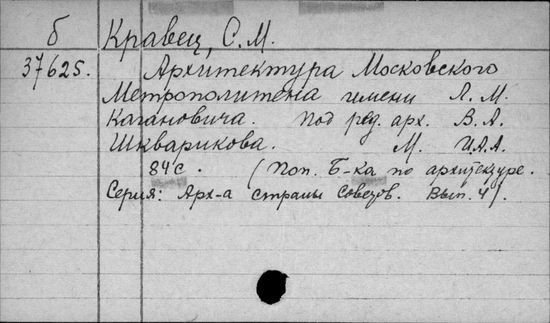 б Кравец, С.М.
37625. Архитектура Московского
Метрополитена имени Л. М.
Кагановича. Под ред. арх. В. А.
Шкварикова. М. И.А.А.
84 с. (Поп. Б-ка по архитектуре.
Серия: Арх-а страны Советов. Вып. 4).